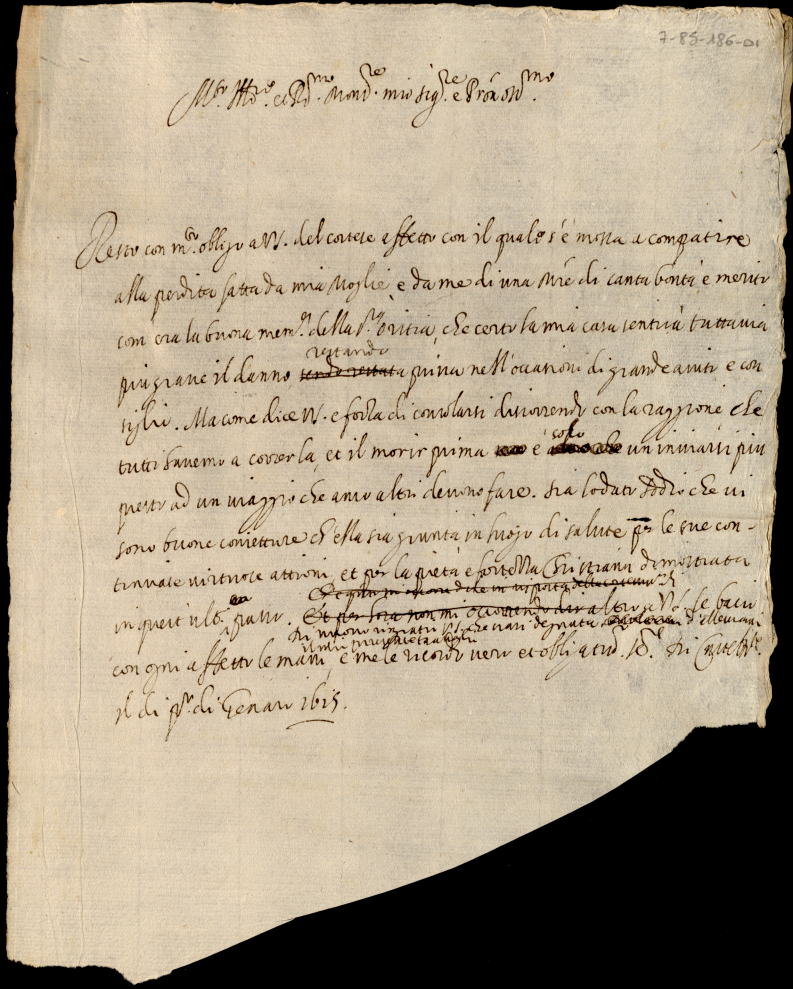 7-85-186-01
M.to Ill.re et R.mo Mons.re mio sig.re e Prõn oss.mo
Resto con m.to obligo a VS. del cortese affetto con il quale s'è mossa a compatire
alla perdita fatta da mia moglie, e da me di una Mre di tanta bontà e merito
com era la buona mem.a della s.ra che certo la mia casa sentirà tuttavia
restando
più grave il danno priva nell'occasioni di grande aiuto e con
siglio. Ma come dice VS. e forza di consolarsi discorrendo con la raggione che
solo
tutti havemo a correrla, et il morir prima è un inviarsi più
presto ad un viaggio che anco altri devono fare. sia lodato Iddio che vi
sono buone conietture ch'ella sia giunta in luogo di salute per le sue con-
tinuate virtuose attioni, et per la pietà e fortezza Christiana dimostrata
in quest'ult.o passo. Et per hora non mi occorrendo dir altro a VS. le bacio
di nuovo ringratio VS. che siasi degnata d'allegrarsi
con ogni affetto le mani, e me le ricordo vero et oblig.
il di p.o di Genaro 1615.